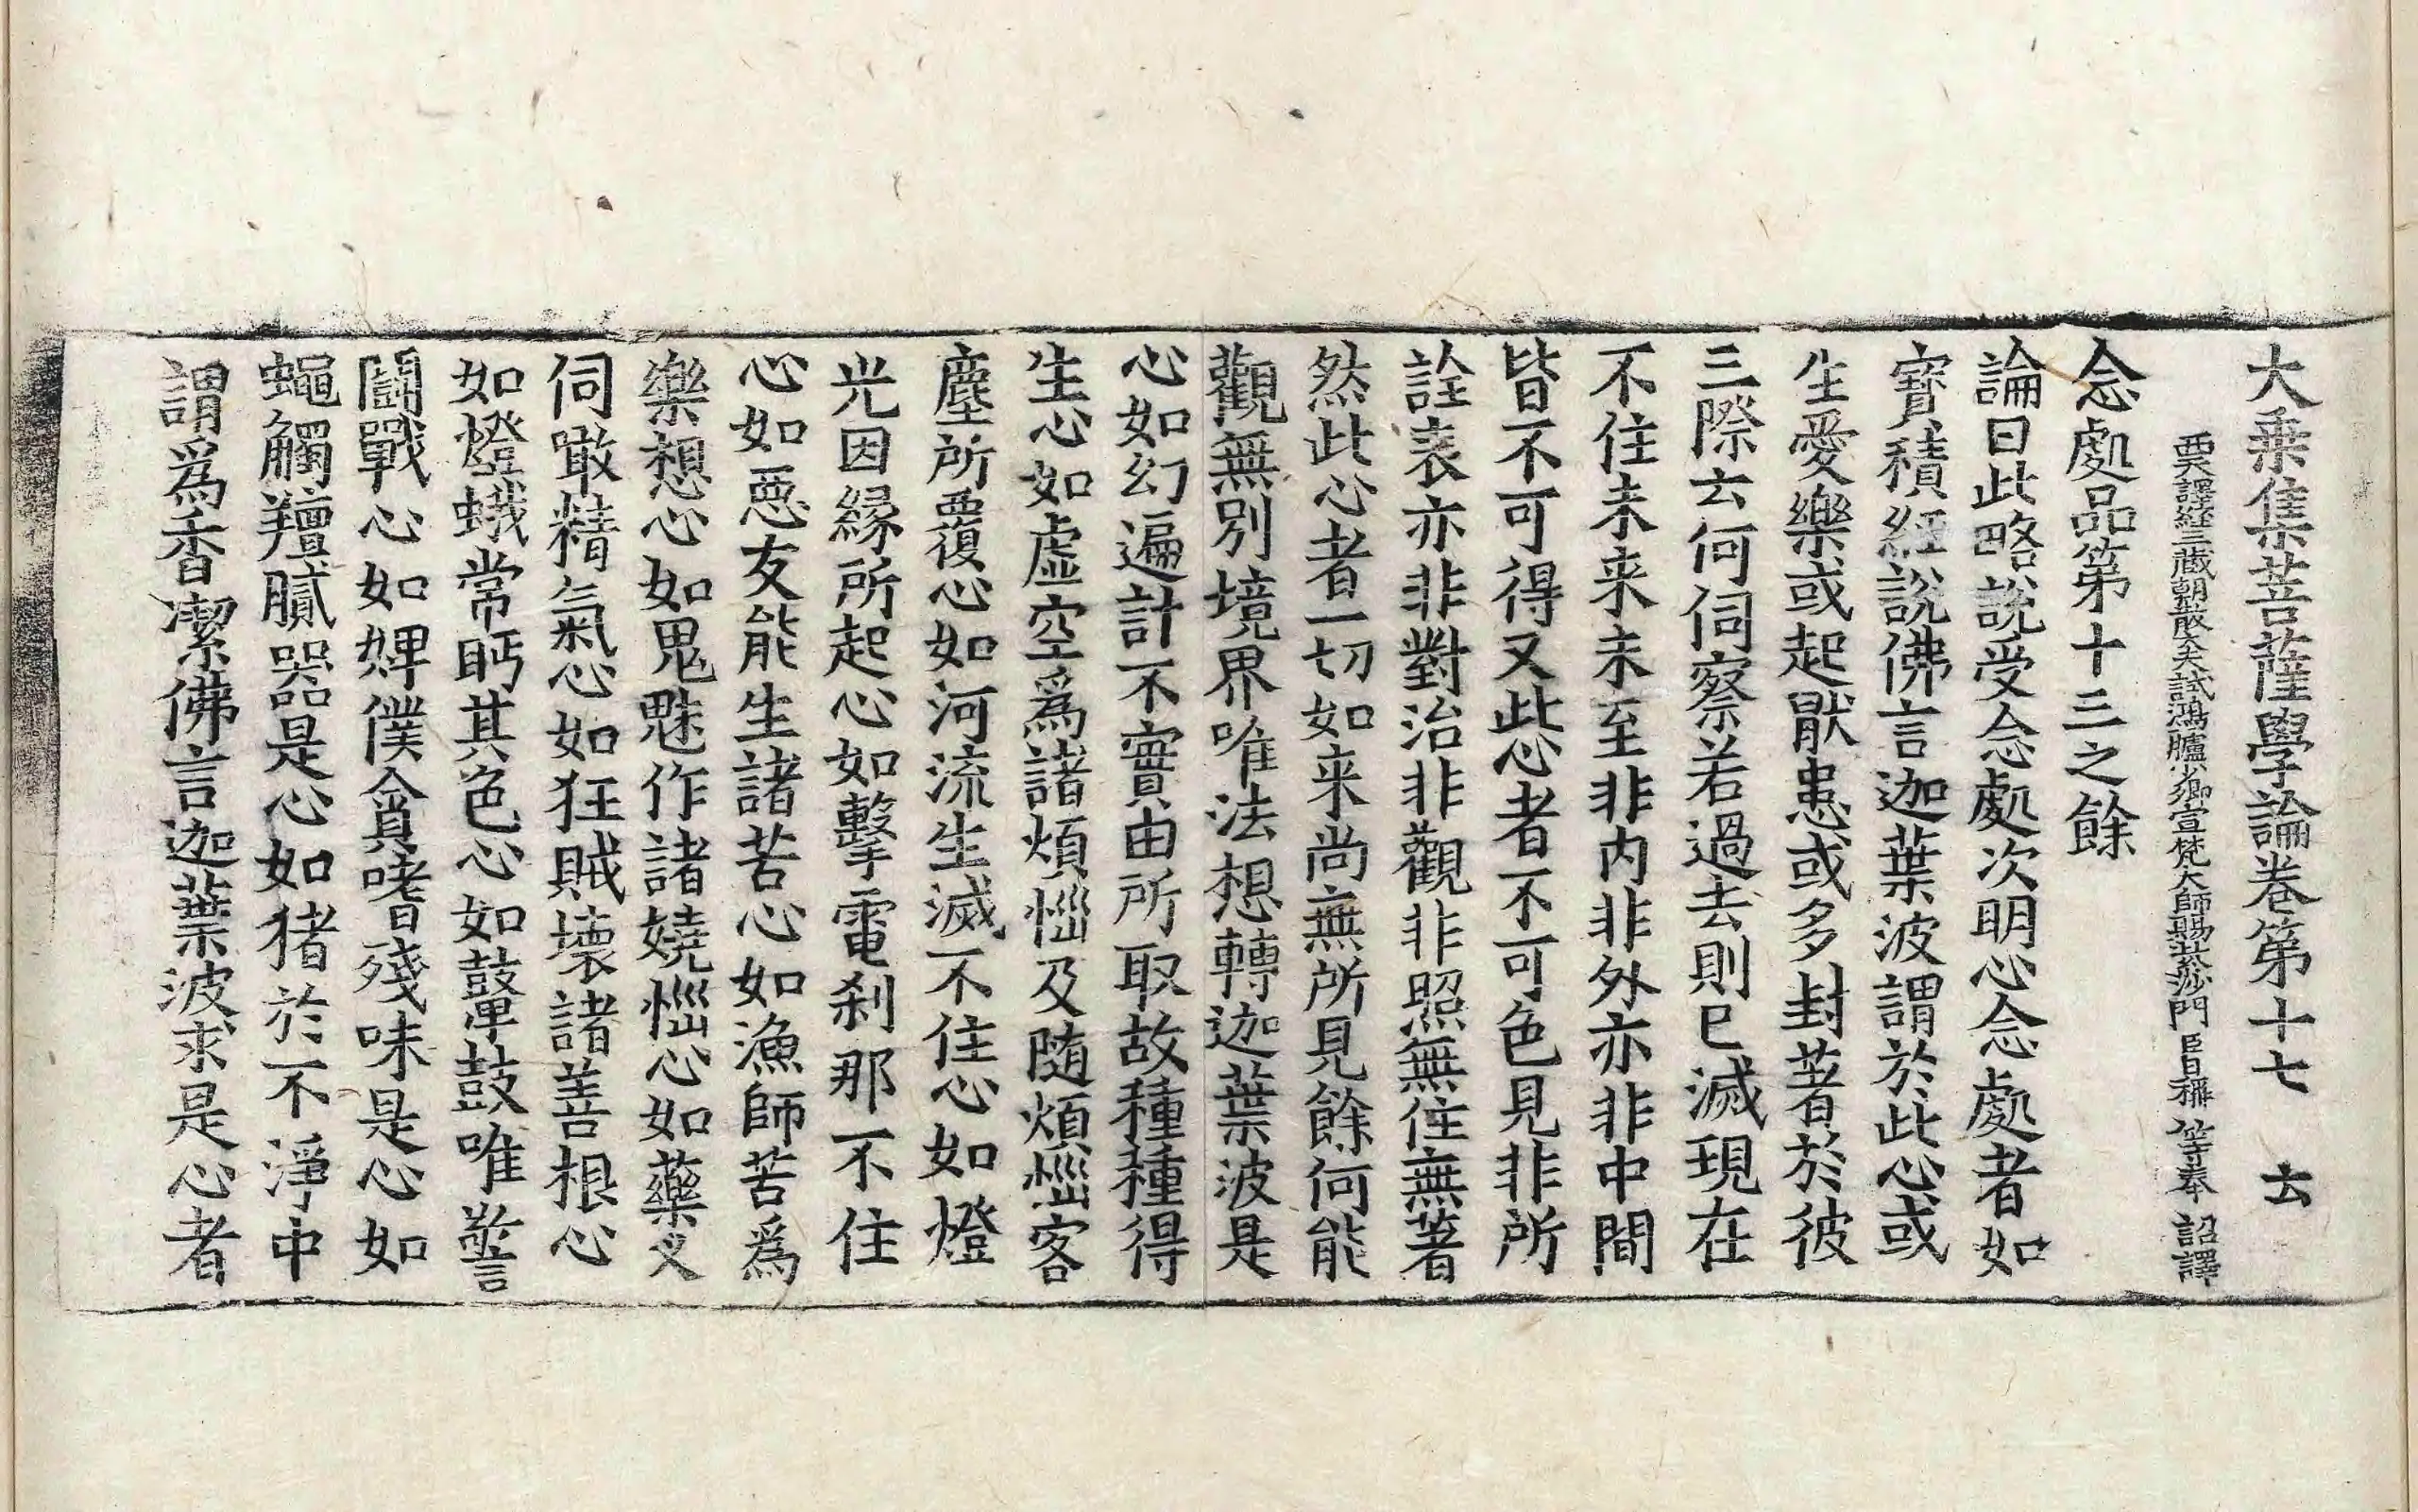 大乗集菩薩學論卷第十七　㐬
西天譯経三蔵朝散大夫試鴻臚少卿宣梵大師賜紫沙門臣日稱等奉詔譯
念處品第十三之餘
論曰此略說受念處次明心念處者如
寶積經說佛言迦葉波謂於此心或
生愛樂或起猒恚或多封著於彼
三際云何伺察若過去則已滅現在
不住未来未至非内非外亦非中間
皆不可得又此心者不可色見非所
詮表亦非對治非觀非照無住無著
然此心者一切如来尚無所見餘何能
觀無別境界唯法想轉迦葉波是
心如幻遍計不實由所取故種種得
生心如虚空爲諸煩惱及随煩惱客
塵所覆心如河流生滅不住心如燈
光因緣所起心如擊電刹那不住
心如惡友能生諸苦心如漁師苦爲
樂想心如鬼魅作諸嬈惱心如藥叉
伺噉精氣心如狂賊壊諸善根心
如燈蛾常眄其色心如鼙鼓唯警
鬪戰心如婢僕貪嗜殘味是心如
蠅觸羶膩器是心如猪於不淨中
謂爲香潔佛言迦葉波求是心者